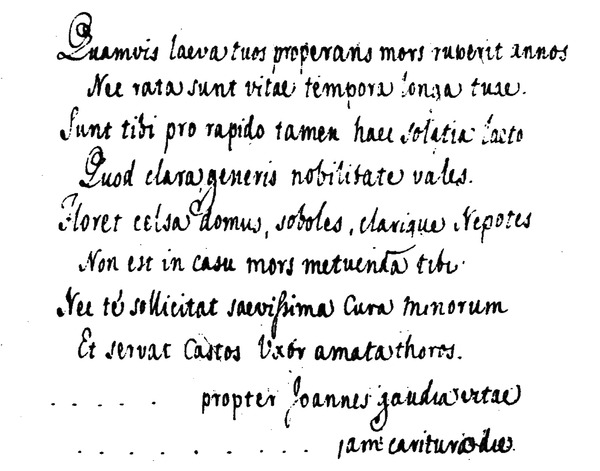 Quamvis laeva tuos properans mors ruperit annos
Nec rata sunt vitae tempora longa tuae.
Sunt tibi pro rapido tamen haec solatia laeto
Quod clara generis nobilitate vales.
Floret celsa domus, soboles, clarique Nepotes
Non est in casu mors metuenda tibi.
Nec te sollicitat saevissima Cura minorum
Et servat Castos Uxor amata thoros.
. . . . . propter Joannes gaudia vitae
. . . . . . . . . . jam cariturus die